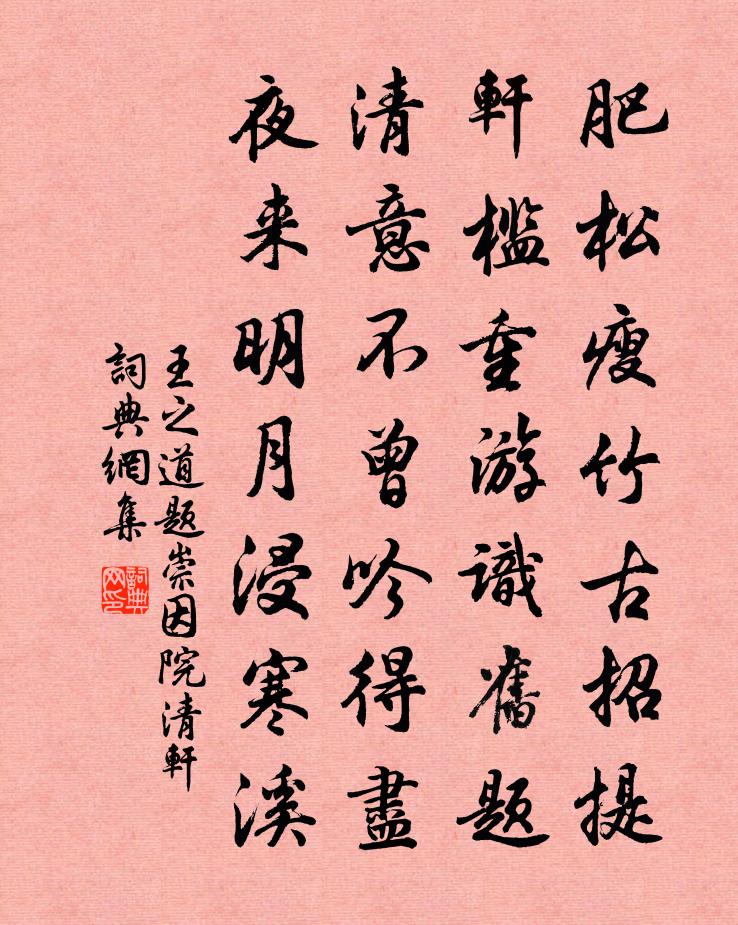 肥松瘦竹古招提
軒檻重游識舊题
清意不曾吟得盡
夜来明月浸寒溪
王之道题崇因院清軒
詞典網集
詞典网印